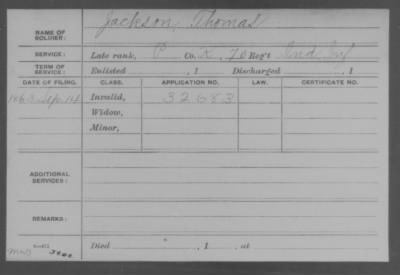 NAME OF SOLDIER: Jackson, Thomas
SERVICE: Late rank, P Co. K, 70 Reg't Ind Inf
TERM OF SERVICE: Enlisted , 1 Discharged , 1
DATE OF FILING. CLASS. APPLICATION NO. LAW. CERTIFICATE NO.
1863 Sep. 14 Invalid, 32683
Widow,
Minor,
ADDITIONAL SERVICES:
REMARKS:
Died , 1 , at